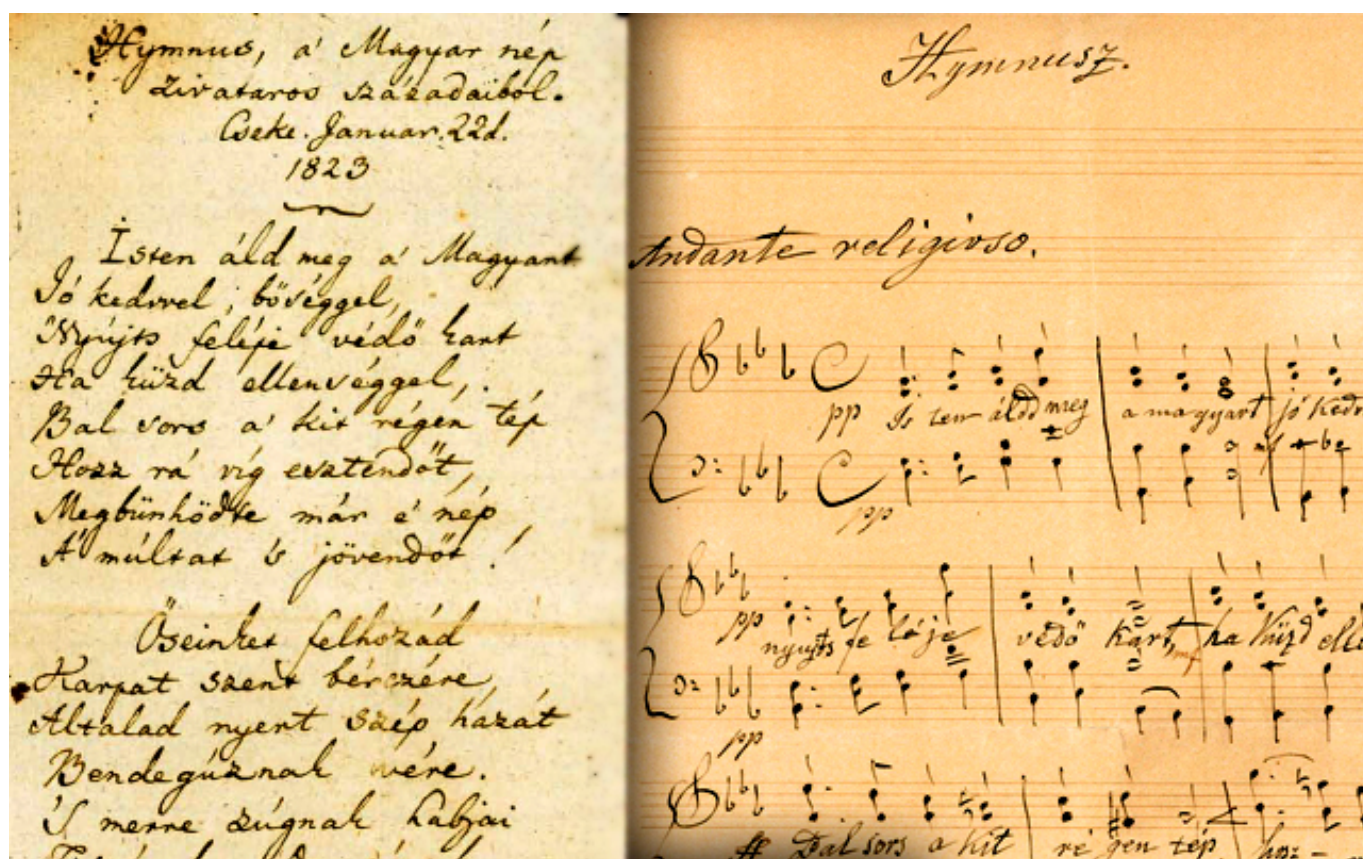 Hymnus, a' Magyar nép
zivataros századaiból.
Cseke. Januar. 22d.
1823
Isten áld meg a' Magyart
Jó kedvvel, bőséggel,
Nyújts feléje védő kart
Ha küzd ellenséggel,
Bal sors a' kit régen tép
Hozz rá víg esztendőt,
Megbünhödte már e' nép
A' múltat 's jövendőt!
Őseinket felhozád
Karpat szent bérczére
Általad nyert szép hazát
Bendegúznak vére.
'S merre zúgnak habjai
Hymnusz.
Andante religioso.
pp Is ten áldd meg a magyart jó kedv
mf
pp
pp nyujts fe léje védő kart, mf ha küzd elle
pp
ff Bal sors a kit ré gen tép hoz -